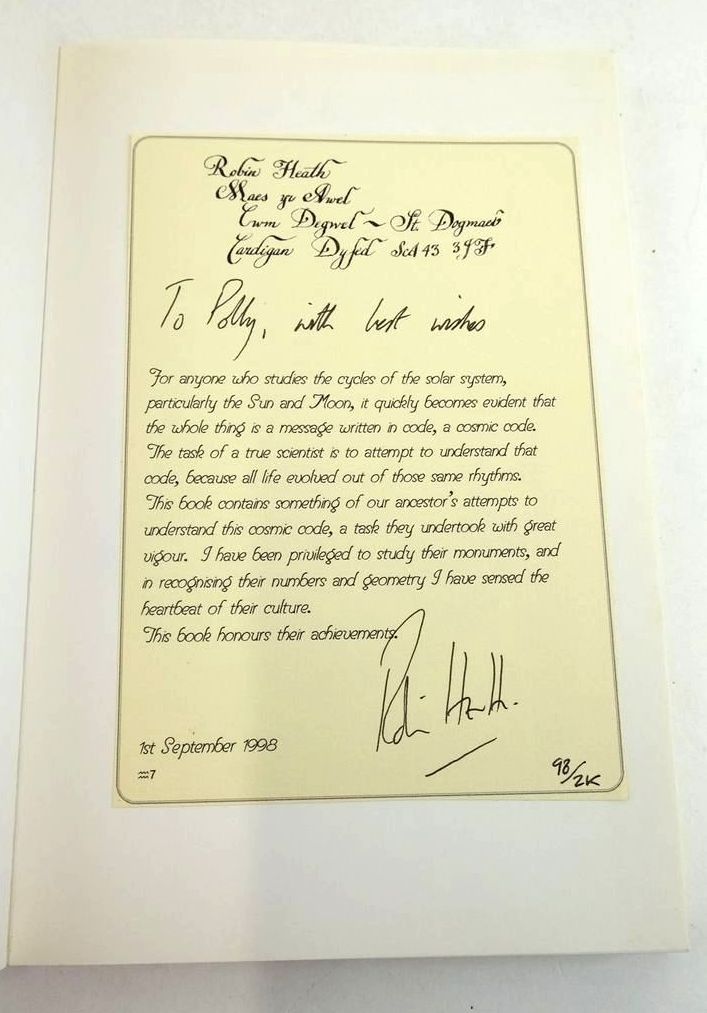 Robin Heath
Maes yr Awel
Cwm Degwel ~ St. Dogmaels
Cardigan Dyfed SA43 3JF
To Polly, with best wishes
For anyone who studies the cycles of the solar system,
particularly the Sun and Moon, it quickly becomes evident that
the whole thing is a message written in code, a cosmic code.
The task of a true scientist is to attempt to understand that
code, because all life evolved out of those same rhythms.
This book contains something of our ancestor's attempts to
understand this cosmic code, a task they undertook with great
vigour. I have been privileged to study their monuments, and
in recognising their numbers and geometry I have sensed the
heartbeat of their culture.
This book honours their achievements.
Robin Heath.
1st September 1998
♒7
98/2K